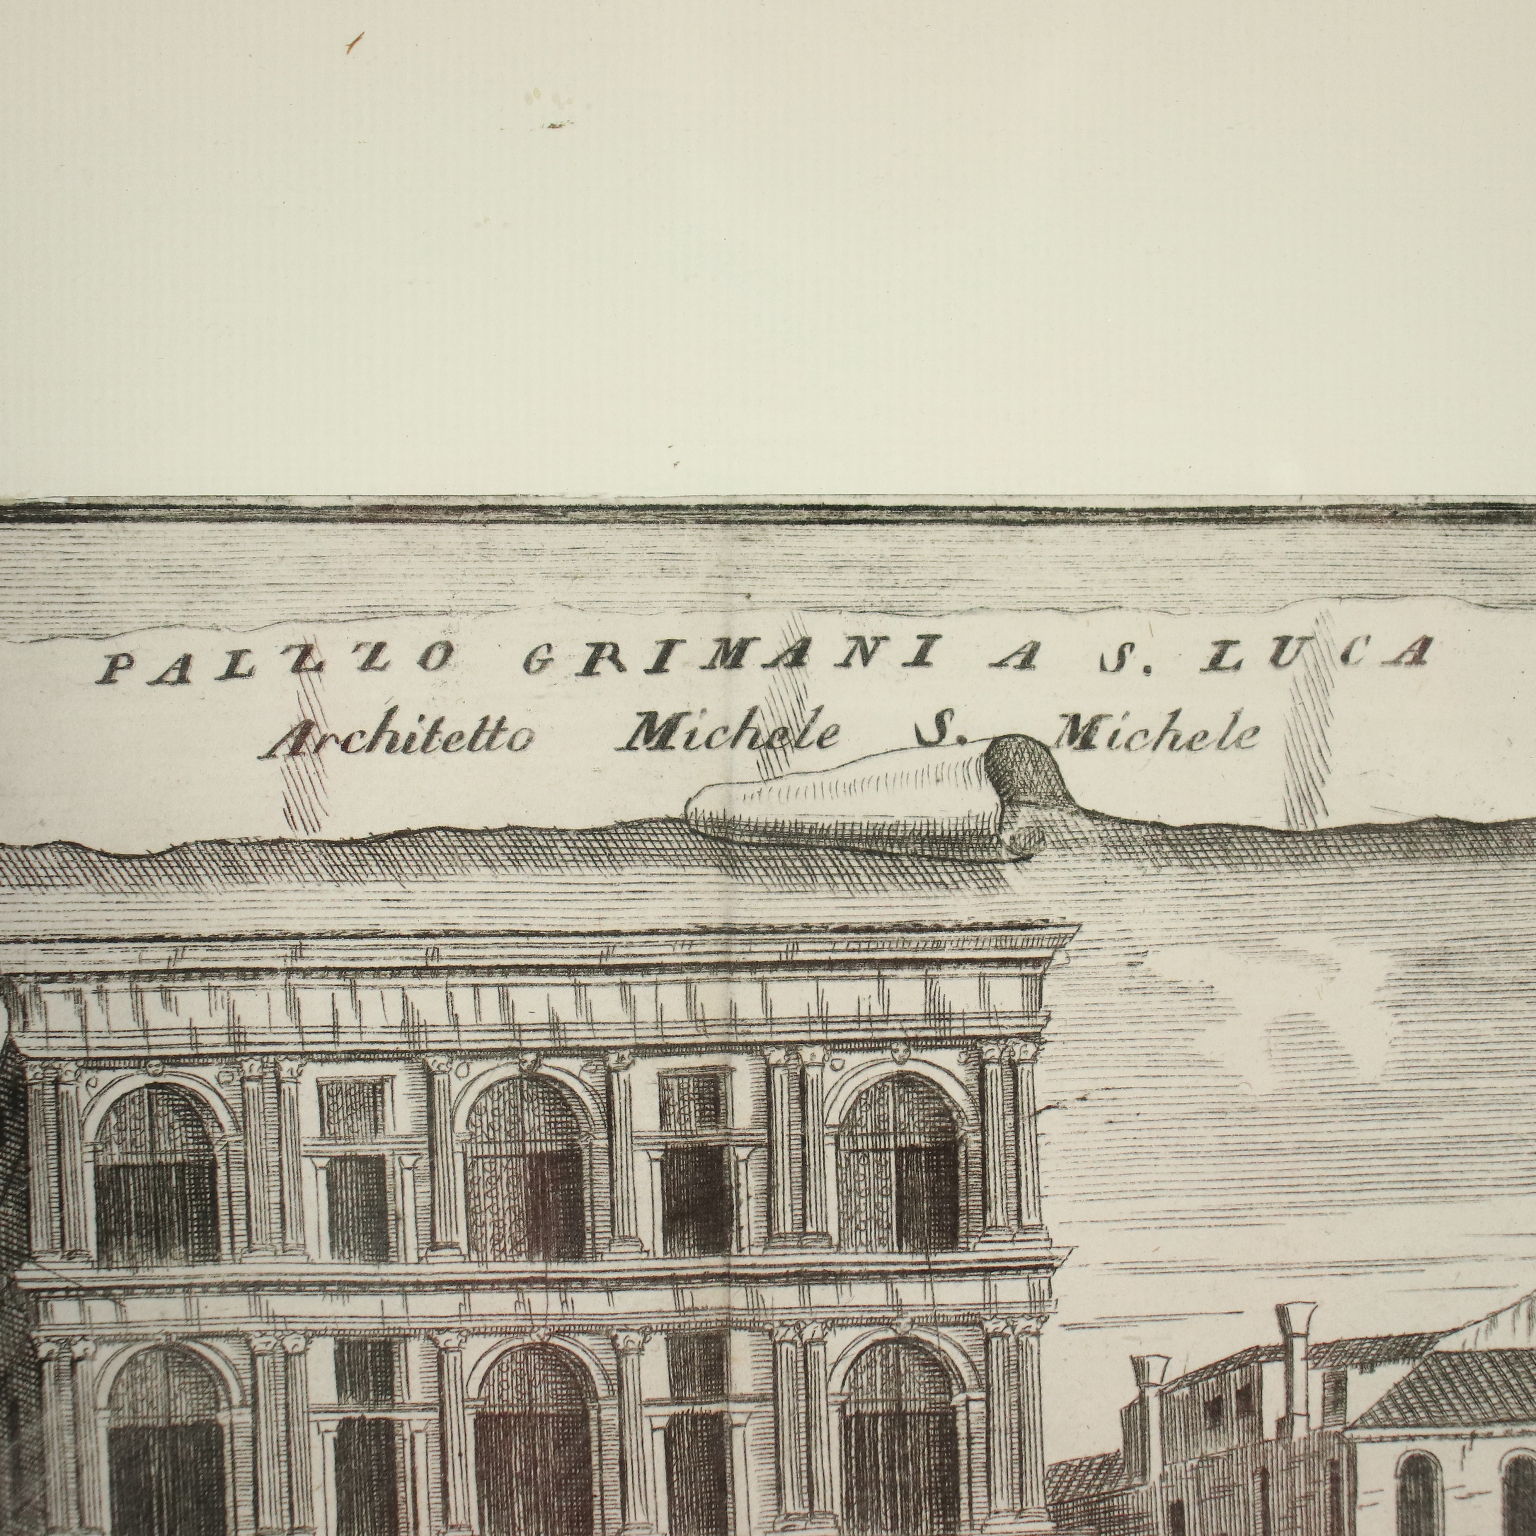 PALZZO GRIMANI A S. LUCA
Architetto Michele S. Michele